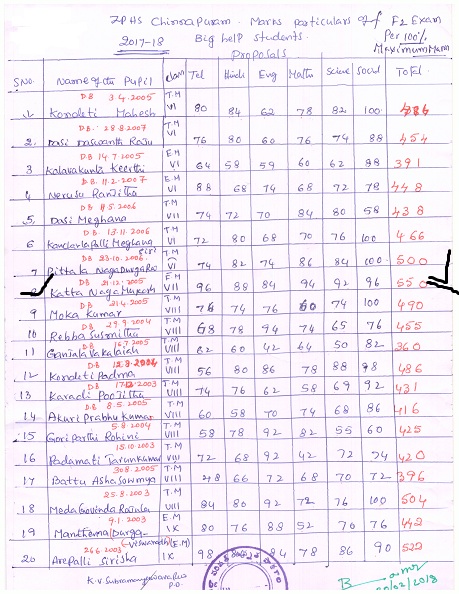 ZPHS Chinnapuram. Marks particulars of F2 Exam
2017-18 Big help students. Per 100%
Proposals Maximum Marks
S.No. Name of the Pupil class Tel Hindi Eng Maths Science Social Total
D.B 3.4.2005 T.M
1 Kondeti Mahesh VI 80 84 62 78 82 100
D.B. 28.8.2007 T.M
2. Dasi Daswanth Raju VI 76 80 60 76 74 88 454
D.B. 14.7.2005 E.M
3 Kalavakunta Keerthi VI 64 58 59 60 62 88 391
D.B. 11.2.2007 E.M
4 Nerusu Ranjitha VI 88 68 74 68 72 78 448
D.B. 11.5.2006 T.M
5. Dasi Meghana VII 74 72 70 84 80 58 438
D.B. 13.11.2006 T.M
6 Kondarlapalli Meghana VII 72 80 68 70 76 100 466
D.B. 23.10.2006 T.M
7 Pittala Naga Durga Rao VI 74 82 74 86 84 100 500
D.B. 21.12.2005 E.M
8 Katta Naga VII 96 88 84 94 92 96 550
D.B. 21.4.2005 T.M
9 Moka Kumar VIII 76 74 76 60 74 100 490
D.B. 29.9.2004 T.M
10 Rebba Susmitha VIII 68 78 94 74 65 76 455
D.B. 16.7.2005 T.M
11 VIII 62 60 42 64 50 82 360
T.M
12 Kondeti Padma VIII 56 80 86 78 88 98 486
D.B. T.M
13 Karadi Poojitha VIII 74 76 62 58 69 92 431
D.B. 8.5.2005 T.M
14 Akuri Prabhu Kumar VIII 60 58 70 74 68 86 416
5.8.2004 T.M
15 Goriparthi Rohini VIII 58 78 92 82 55 60 425
15.10.2003 T.M
16 Padamati Tarun Kumar VIII 72 68 92 42 72 74 420
30.8.2005 T.M
17 Battu Asha Sowmya VIII 48 66 72 68 70 72 396
25.8.2003 T.M
18 Meda Govinda VIII 84 80 92 72 76 100 504
9.1.2003 E.M
19 Durga IX 80 76 88 52 70 76 442
26.6.2003 (E.M)
20 Arepalli Sirisha IX 98 84 78 86 90 522
K.V. Subramanyeswara Rao
P.D.
20/02/2018